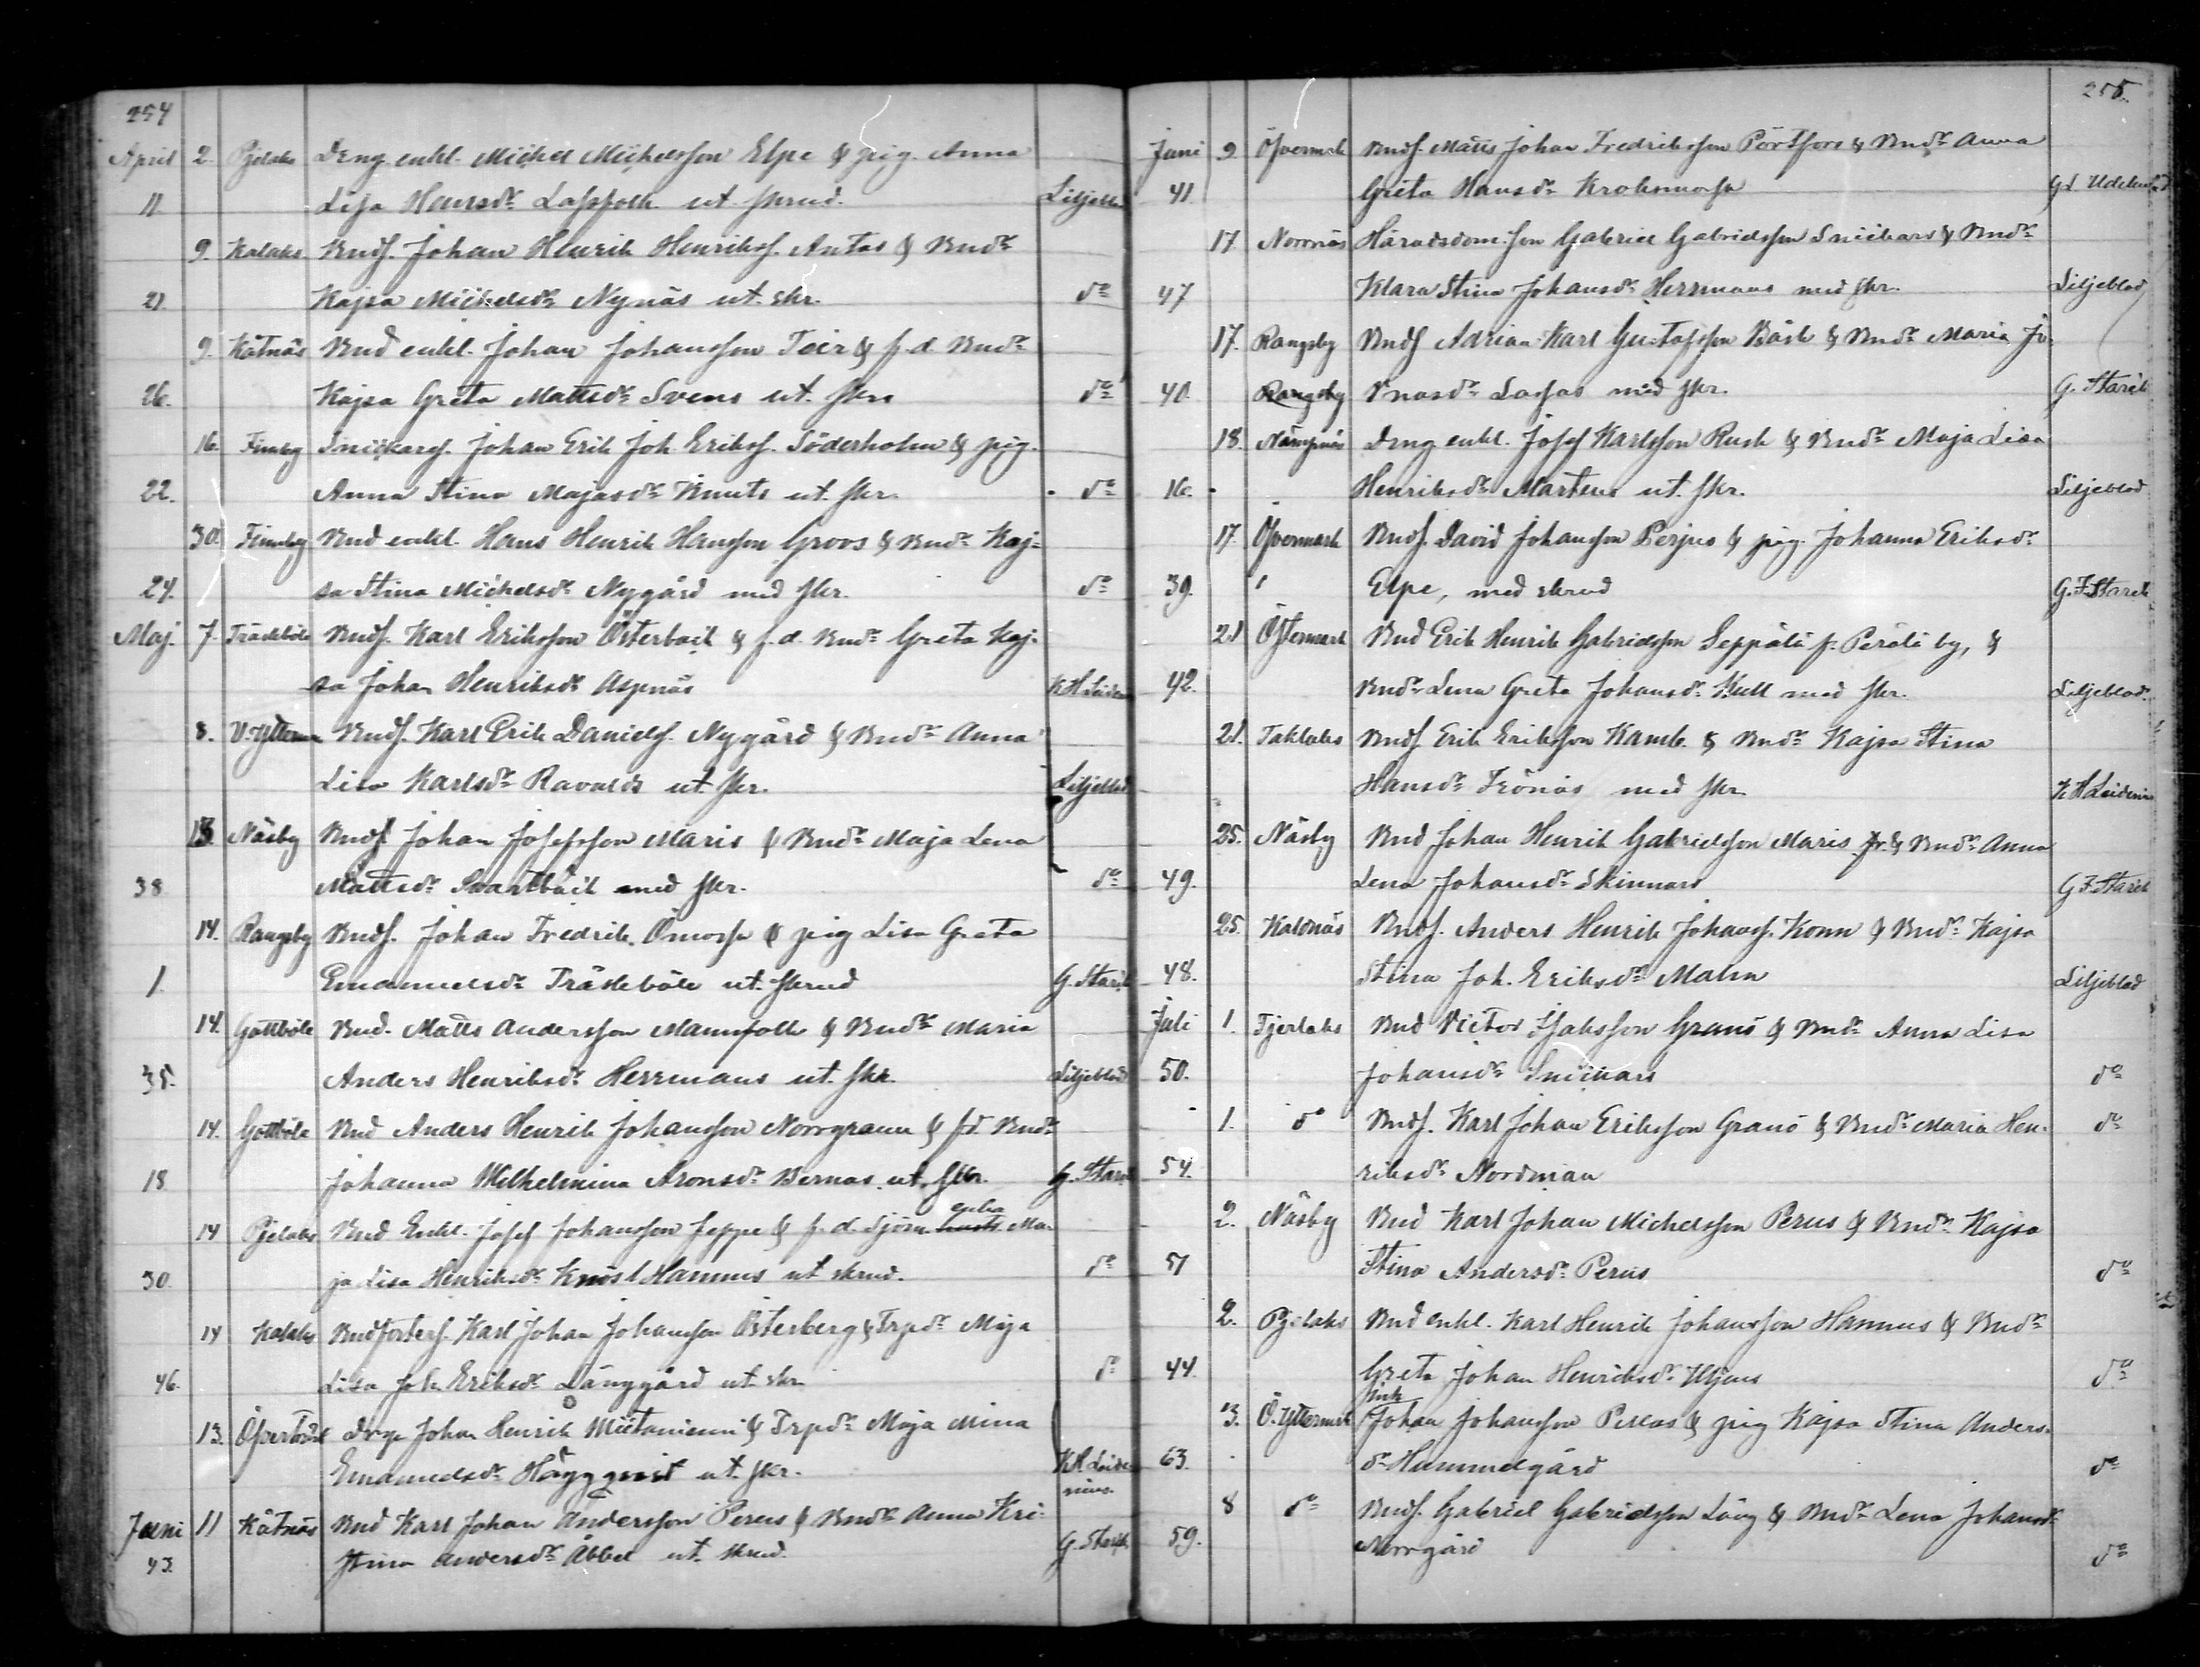 254
April 2. Pjelaks Deng. enkl. Michel Michelsson Elpe & pig. Anna
11. Lisa Hansdr Lassfolk ut. skrud. Liljeblad
9. Kalaks Bnds. Johan Henrik Henrikss. Antas & Bndr
21. Kajsa Michelsdr Nynäs ut. skr. do
9. Kåtnäs Bnd enkl. Johan Johansson Teir & f.d. Bndr
26. Kajsa Greta Mattsdr Svens ut. skr. do
16. Finnby Snickares. Johan Erik Joh. Erikss. Söderholm & pig.
22. Anna Stina Majasdr Knuts ut. skr. do
30. Finnby Bnd enkl. Hans Henrik Hansson Groos & Bndr Kaj=
24. sa Stina Michelsdr Nygård med skr. do
Maj. 7. Träskböle Bnds. Karl Eriksson Österback & f.d. Bndr Greta Kaj-
sa Johan Henriksdr Aspnäs
8. V. Ytterm Bnds. Karl Erik Daniels. Nygård & Bndr Anna
Lisa Karlsdr Ravalds ut skr. Liljeblad
13 Näsby Bnds Johan Josefsson Maris & Bndr Maja Lena
38 Mattsdr Svartbäck med skr. do
14. Rangsby Bnds. Johan Fredrik Ömossa & pig Lisa Greta
1. Emanuelsdr Träskböle ut. skrud G. Starck
14. Gottböle Bnd. Matts Andersson Mannfolk & Bndr Maria
35. Anders Henriksdr Herrmans ut. skr. Liljeblad
14. Gottböle Bnd Anders Henrik Johansson Norrgrann & f.d. Bndr
18. Johanna Wilhelmina Aronsdr Bernas ut. skr. G. Starck
enka
14 Pjelaks Bnd Enkl. Josef Johansson Seppe & f.d. Sjöm. Ma-
30. ja Lisa Henriksdr Knös Hannus ut skrud. do
14 Kalaks Karl Johan Johansson Österberg & Trpdr Maja
46. Lisa Joh. Eriksdr Långgård ut. skr. do
13. Öfverträsk Johan Henrik & Trpdr Maja Mina
Emanuelsdr Häggqvist ut. skr.
Juni 11 Kåtnäs Bnd Karl Johan Andersson Perus & Bndr Anna Kri-
43. stina Andersdr Åbbel ut. skrud. G. Starck
255.
Juni 9. Öfvermark Bnds. Matts Johan Fredriksson Pörtfors & Bndr Anna
41. Greta Hansdr Kroksmossa
17. Norrnäs Häradsdom. son Gabriel Gabrielsson Snickars & Bndr
47 Klara Stina Johansdr Herrmans med skr. Liljeblad
17. Rangsby Bnds Adrian Karl Gustafsson Bäck & Bndr Maria Jo-
40. Rangsby nasdr Lassas med skr. G. Starck
18. Nämpnäs Deng enkl. Josef Karlsson Rusk & Bndr Maja Lisa
16. Henriksdr Martens ut. skr. Liljeblad
17. Öfvermark Bnds. David Johansson Perjus & pig. Johanna Eriksdr
39. Elpe, med skrud G. F. Starck
21 Östermark Bnd Erik Henrik Gabrielsson Seppälä fr. Perälä by, &
42. Bndr Lena Greta Johansdr Kull med skr. Liljeblad
21. Taklaks Bnds. Erik Eriksson Kamb. & Bndr Kajsa Stina
Hansdr Frönäs med skr.
25. Näsby Bnd Johan Henrik Gabrielsson Maris & Bndr Anna
49. Lena Johansdr Skinnars G F. Starck
25. Kaldnäs Bnds. Anders Henrik Johanss. Konn & Bndr Kajsa
48. Stina Joh. Eriksdr Malm Liljeblad
Juli 1. Tjerlaks Bnd Victor Isaksson Granö & Bndr Anna Lisa
50. Johansdr Snickars do
1. do Bnds. Karl Johan Eriksson Granö & Bndr Maria Hen- do
54. riksdr Nordman
2. Näsby Bnd Karl Johan Michelsson Perus & Bndr Kajsa
51 Stina Andersdr Perus do
2. Pjelaks Bnd enkl. Karl Henrik Johansson Hannus & Bndr
44. Greta Johan Henriksdr do
3. Ö. Yttermark Johan Johansson Pellas & pig Kajsa Stina Anders-
63. dr Hammelgård do
8 do Bnds. Gabriel Gabrielsson Lång & Bndr Lena Johansdr
59. Norrgård do